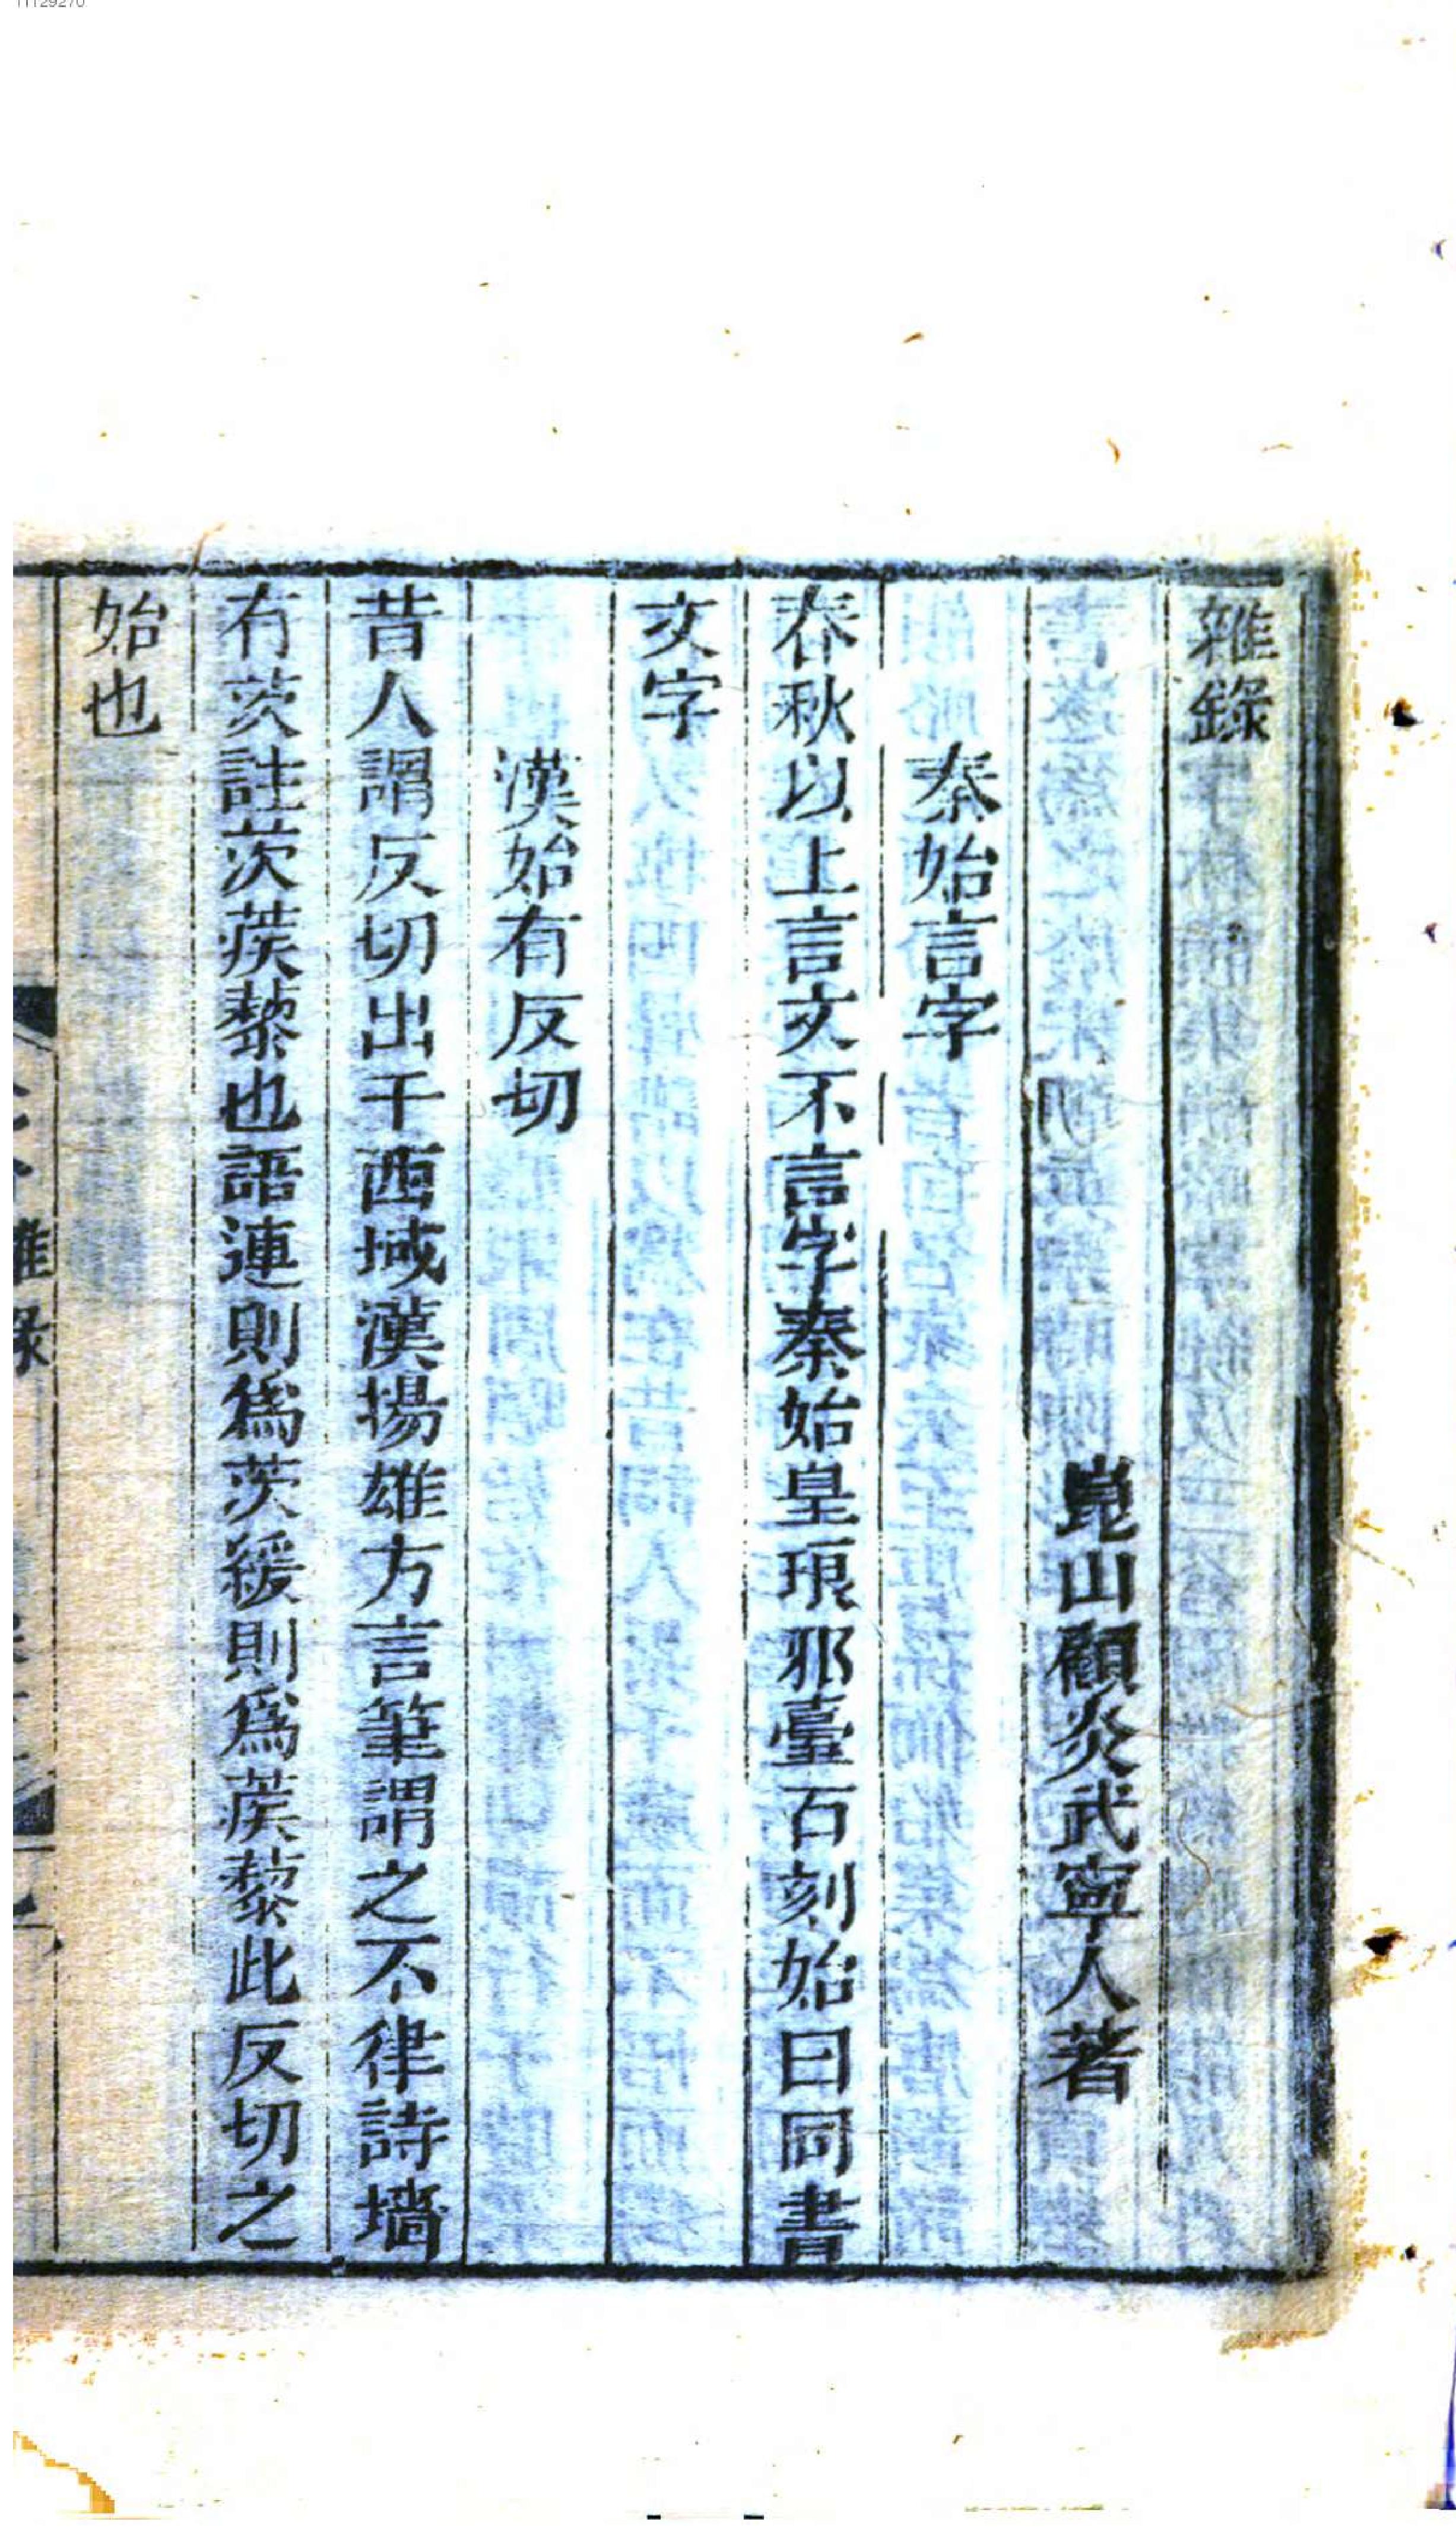 雜錄
崑山顧炎武寧人著
秦始言字
春秋以上言文不言字秦始皇琅邪臺石刻始曰同書
文字
漢始有反切
昔人謂反切出于西域漢揚雄方言筆謂之不律詩墻
有茨註茨蒺藜也語連則爲茨緩則爲蒺藜此反切之
始也
雜錄